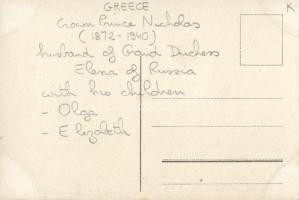 GREECE
K
Crown Prince Nicholas
(1872-1940)
husband of Grand Duchess
Elena of Russia
with his children
- Olga
- Elizabeth